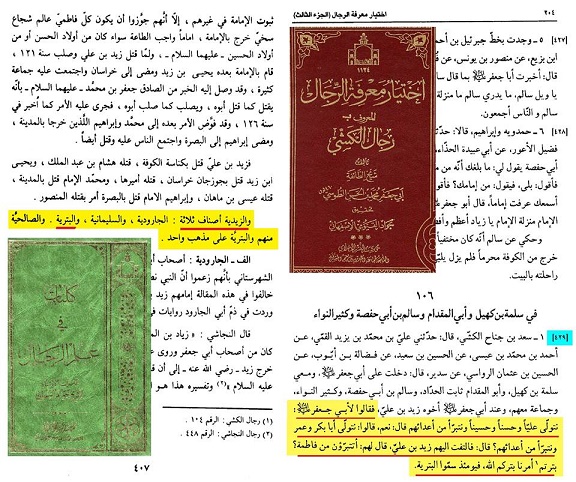 اختيار معرفة الرجال (الجزء الثالث)
٢٠٤
[٤٢٧]
٥ ـ وجدت بخطّ جبرئيل بن أحمد
ابن بزيع، عن منصور بن يونس، عن
قال: أخبرت أبا جعفر بما قال سا
يا ويل سالم، ما يدري سالم ما منزلة
سالم والناس أجمعون.
[٤٢٨]
٦ ـ حمدويه وإبراهيم، قالا: حدّثنا
فضيل الأعور، عن أبي عبيدة الحذّاء،
أبي حفصة يقول لي: ما بلغك أنّه من
فأقول: بلى، فيقول: من إمامك؟ فأقول
أسمعك عرفت إماماً، قال أبو
الإمام منزلة الإمام يا زياد أعظم وأفضل
وحكي عن سالم أنّه كان مختفياً
خرج من الكوفة محرماً فلم يزل يلبّي
راحلته بالبيت.
١٠٦
في سلمة بن كهيل وأبي المقدام وسالم بن أبي حفصة وكثير النواء
[٤٢٩]
١ ـ سعد بن جناح الكشّي، قال: حدّثني عليّ بن محمّد بن يزيد القمّي، عن
أحمد بن محمّد بن عيسى، عن الحسين بن سعيد، عن فضالة بن أيّوب، عن
الحسين بن عثمان الرواسي، عن سدير، قال: دخلت على أبي جعفر، ومعي
سلمة بن كهيل، وأبو المقدام ثابت الحدّاد، وسالم بن أبي حفصة، وكثير النواء،
وجماعة معهم، وعند أبي جعفر أخوه زيد بن عليّ، فقالوا لأبي جعفر:
نتولّى عليّاً وحسناً وحسيناً ونتبرّأ من أعدائهم قال: نعم، قالوا: نتولّى أبا بكر وعمر
ونتبرّأ من أعدائهم؟ قال: فالتفت إليهم زيد بن عليّ، قال لهم: أتتبرّؤون من فاطمة؟
بترتم أمرنا بتركم الله، فيومئذ سمّوا البترية.
اختيار معرفة الرجال
المعروف بـ
رجال الكشي
ثبوت الإمامة في غيرهم، إلّا أنّهم جوّزوا أن يكون كلّ فاطميّ عالم شجاع
سخيّ خرج بالإمامة، اماماً واجب الطاعة سواء كان من أولاد الحسن أو من
أولاد الحسين ـ عليهما السلام ـ، ولمّا قتل زيد بن علي وصلب سنة ١٢١،
قام بالإمامة بعده يحيى بن زيد ومضى إلى خراسان واجتمعت عليه جماعة
كثيرة، وقد وصل إليه الخبر من الصادق جعفر بن محمّد ـ عليهما السلام ـ بأنّه
يقتل كما قتل أبوه، ويصلب كما صلب أبوه، فجرى عليه الأمر كما أخبر في
سنة ١٢٦، وقد فوّض الأمر بعده إلى محمّد وإبراهيم اللّذين خرجا بالمدينة،
ومضى إبراهيم إلى البصرة واجتمع الناس عليه وقتل أيضاً.
فزيد بن عليّ قتل بكناسة الكوفة، قتله هشام بن عبد الملك، ويحيى
ابن زيد قتل بجوزجان خراسان، قتله أميرها، ومحمّد الإمام قتل بالمدينة،
قتله عيسى بن ماهان، وإبراهيم الإمام قتل بالبصرة أمر بقتله المنصور.
والزيدية أصناف ثلاثة: الجارودية، والسليمانية، والبترية. والصالحيّة
منهم والبتريّة على مذهب واحد.
الف ـ الجارودية: أصحاب أبي
الشهرستاني بأنّهم زعموا أنّ النبي نص
خالفوا في هذه المقالة إمامهم زيد بن
وردت في ذمّ أبي الجارود روايات في
قال النجاشي: «زياد بن المـ
كان من أصحاب أبي جعفر وروى عـ
خرج زيد ـ رضي الله عنه ـ. إلى أ
عليه السلام»(٢) وتفسيره هذا هو ا
(١) رجال الكشي: الرقم ١٠٤
(٢) رجال النجاشي: الرقم ٤٤٨
٤٠٧
كليات
في
علم الرجال